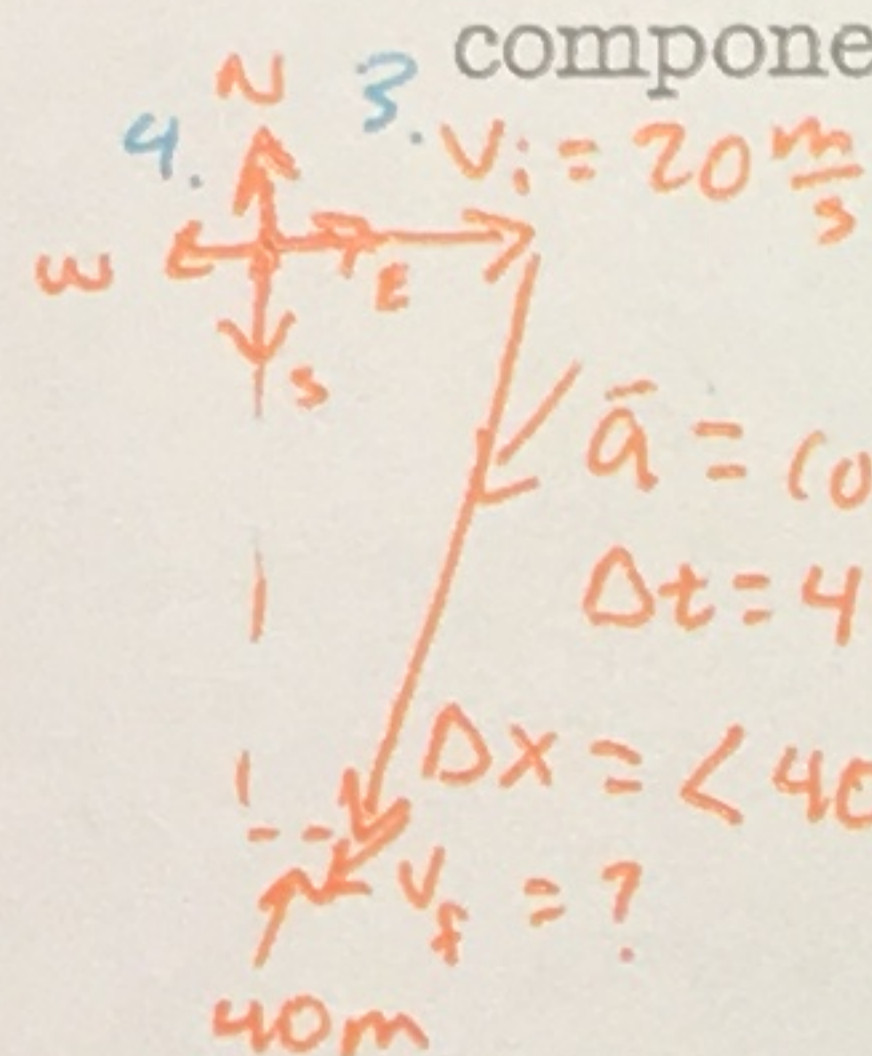 compone
N
3.
4.
Vi = 20 m/s
W
E
S
ā = (0
Δt = 4
Δx = < 40
Vf = ?
40m